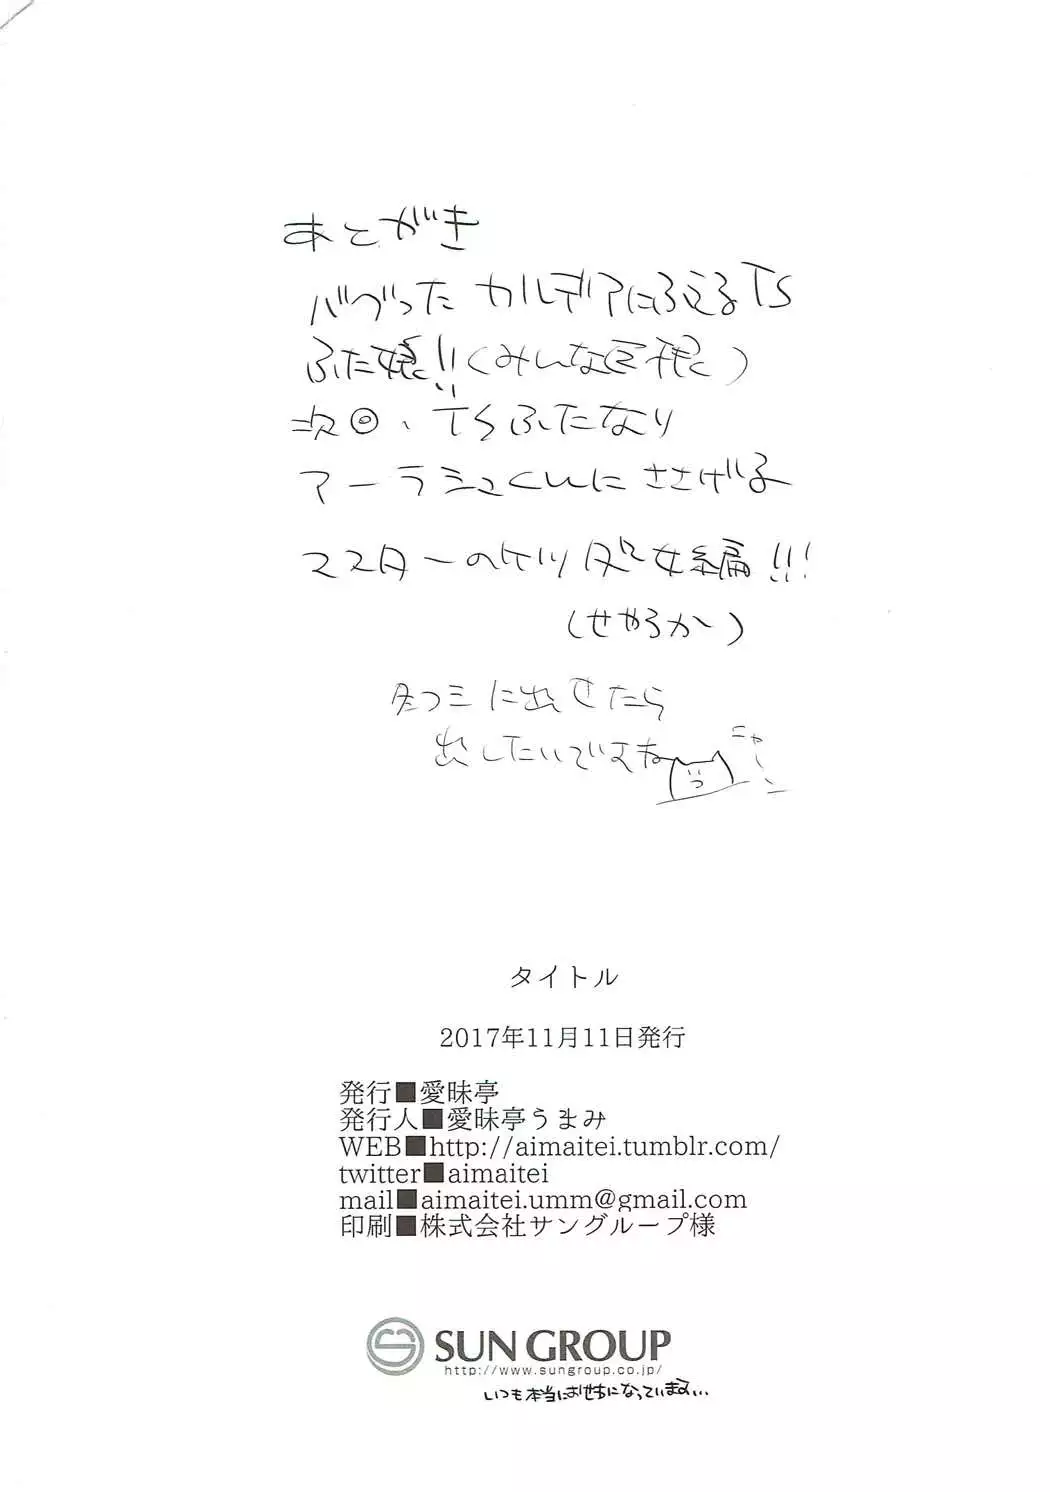 あとがき
バグった カルデアにふえるTS
ふた娘!!(みんな巨根)
次回、TSふたなり
アーラシュくんに ささげる
マスターのケツ処女編!!!
(せやろか〜)
冬コミに出せたら
出したいですね
ニャーン
タイトル
2017年11月11日発行
発行■愛昧亭
発行人■愛昧亭うまみ
WEB■http://aimaitei.tumblr.com/
twitter■aimaitei
mail■aimaitei.umm@gmail.com
印刷■株式会社サングループ様
SUN GROUP
http://www.sungroup.co.jp/
いつも本当におせわになっています...